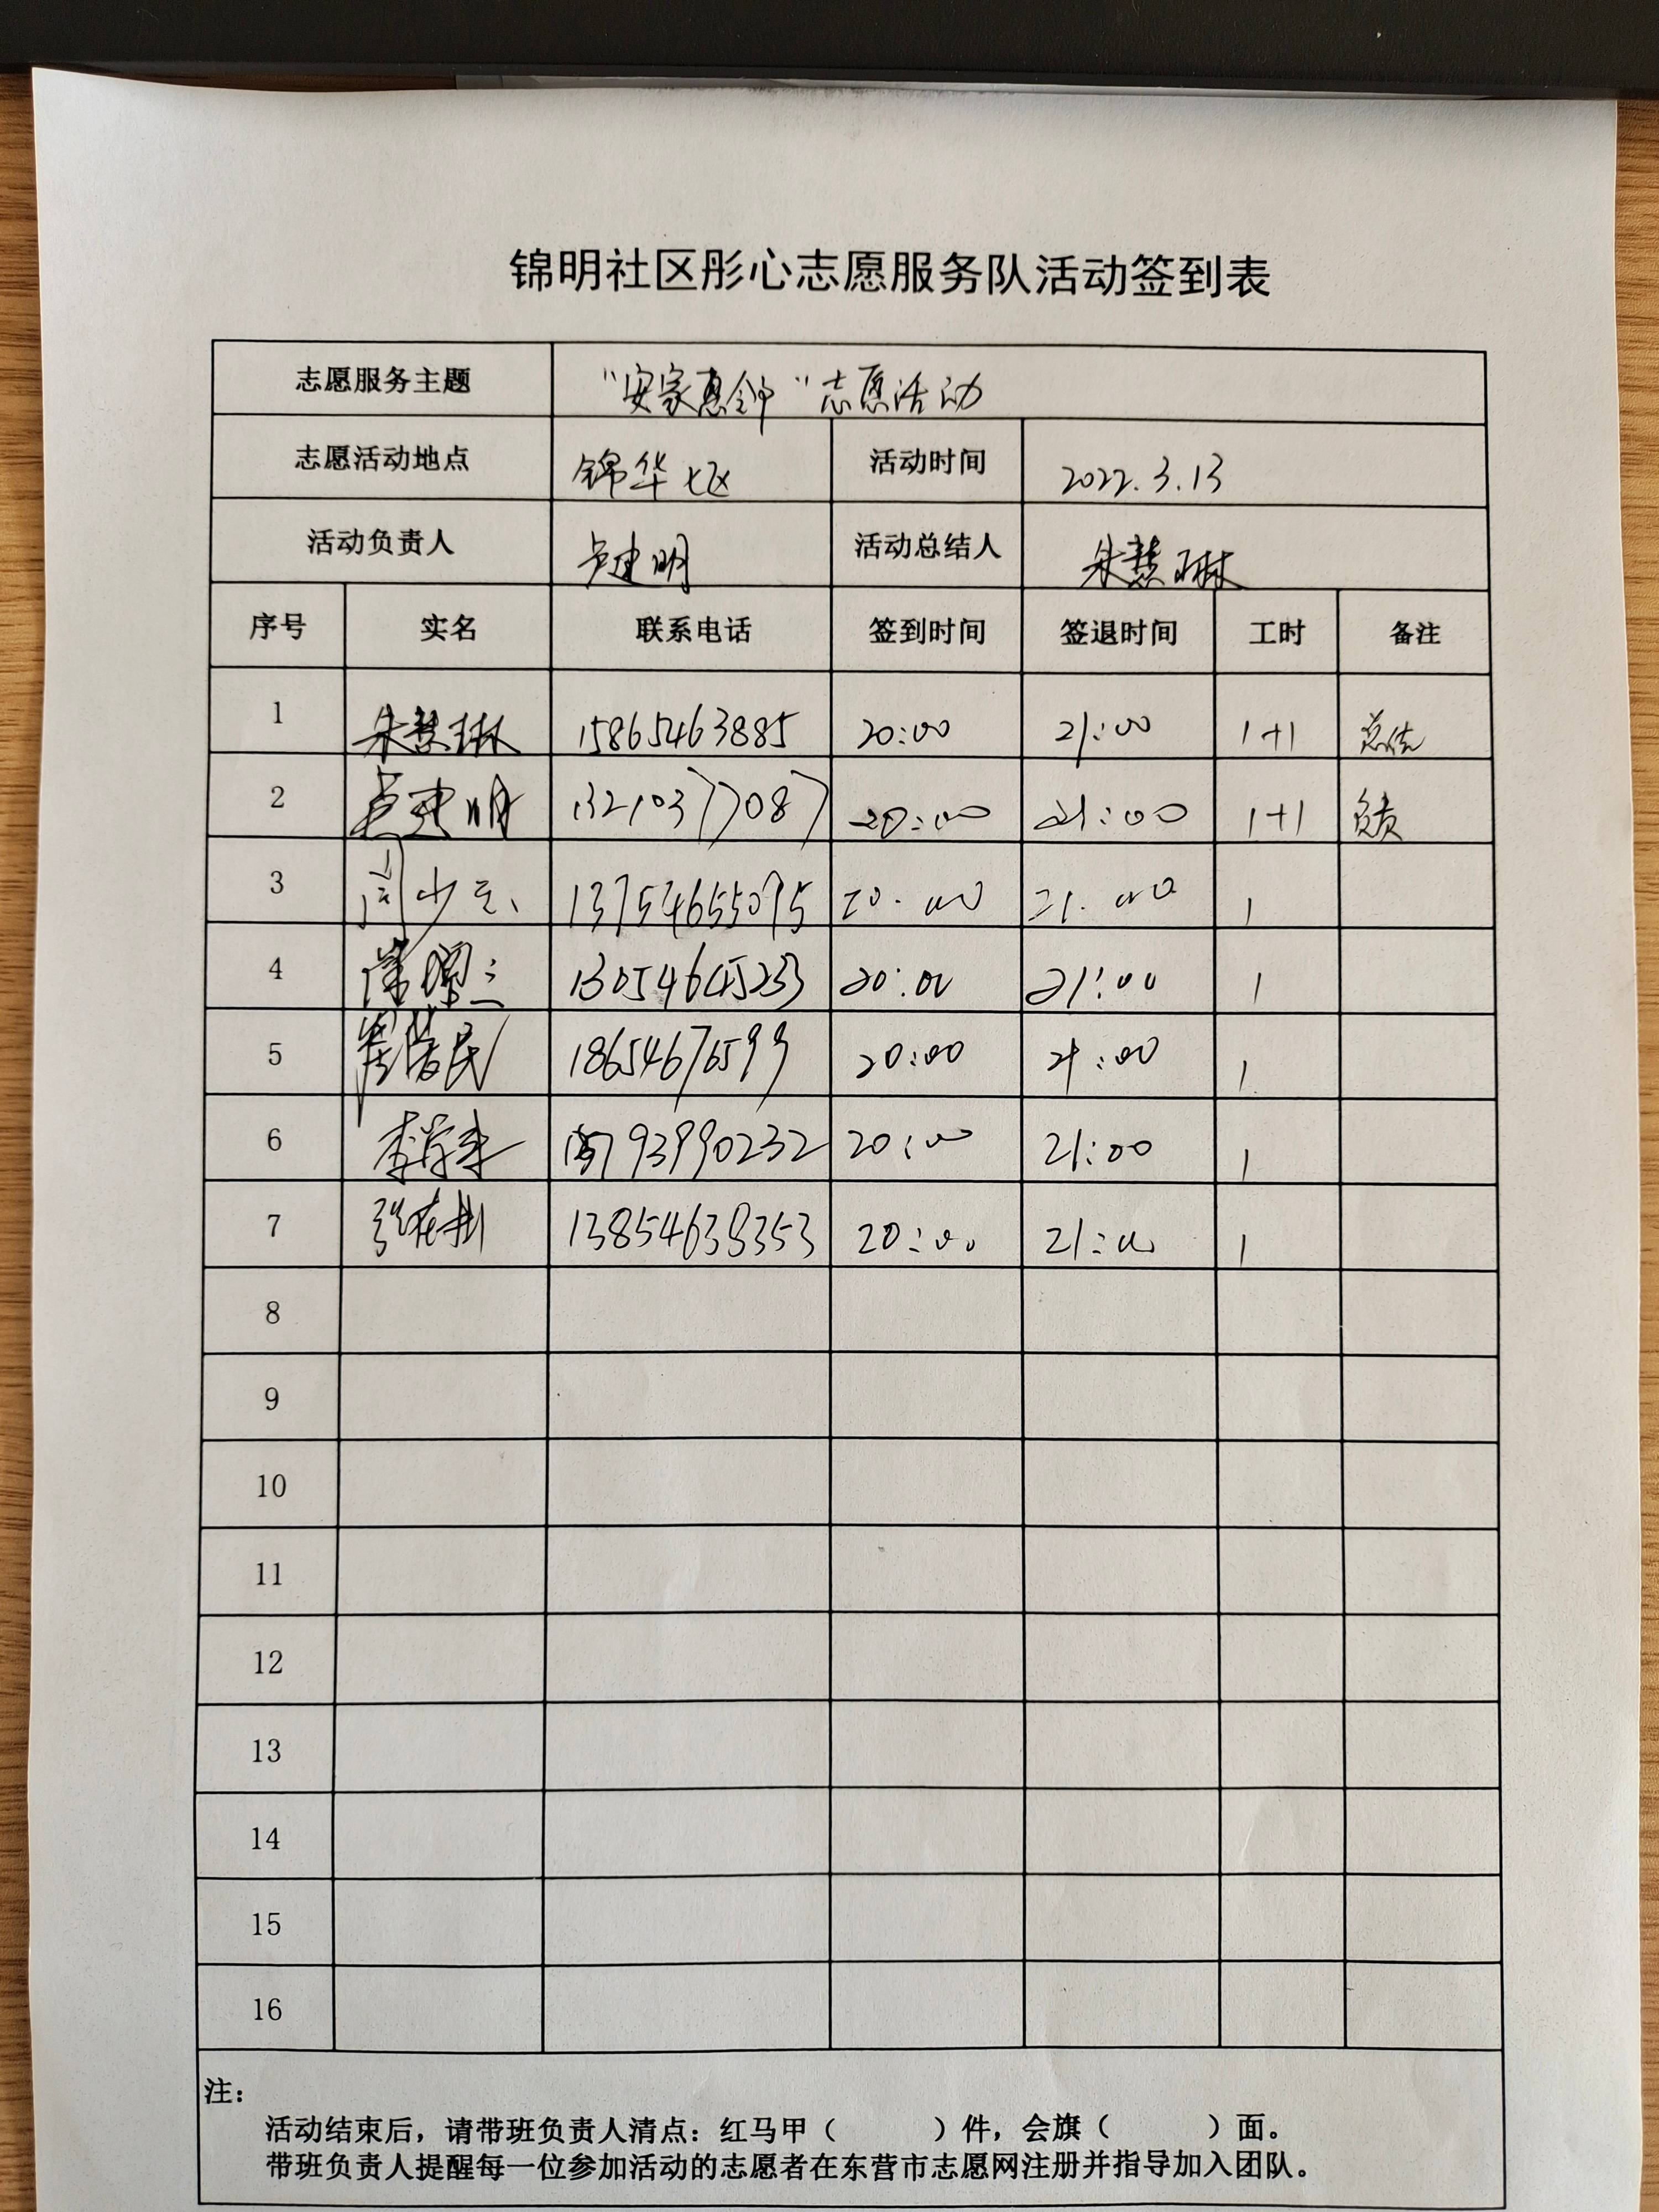 锦明社区彤心志愿服务队活动签到表
志愿服务主题 "安家惠邻"志愿活动
志愿活动地点 锦华七区 活动时间 2022.3.13
活动负责人 卢建明 活动总结人 朱慧琳
序号 实名 联系电话 签到时间 签退时间 工时 备注
1 朱慧琳 15865463885 20:00 21:00 1+1 总结
2 卢建明 13210377087 20:00 21:00 1+1 负责
3 周少 13754655075 20:00 21:00 1
4 20:00 21:00 1
5 民 18654676599 20:00 21:00 1
6 李 93990232 20:00 21:00 1
7 张 13854638353 20:00 21:00 1
8
9
10
11
12
13
14
15
16
注：
活动结束后，请带班负责人清点：红马甲（ ）件，会旗（ ）面。
带班负责人提醒每一位参加活动的志愿者在东营市志愿网注册并指导加入团队。